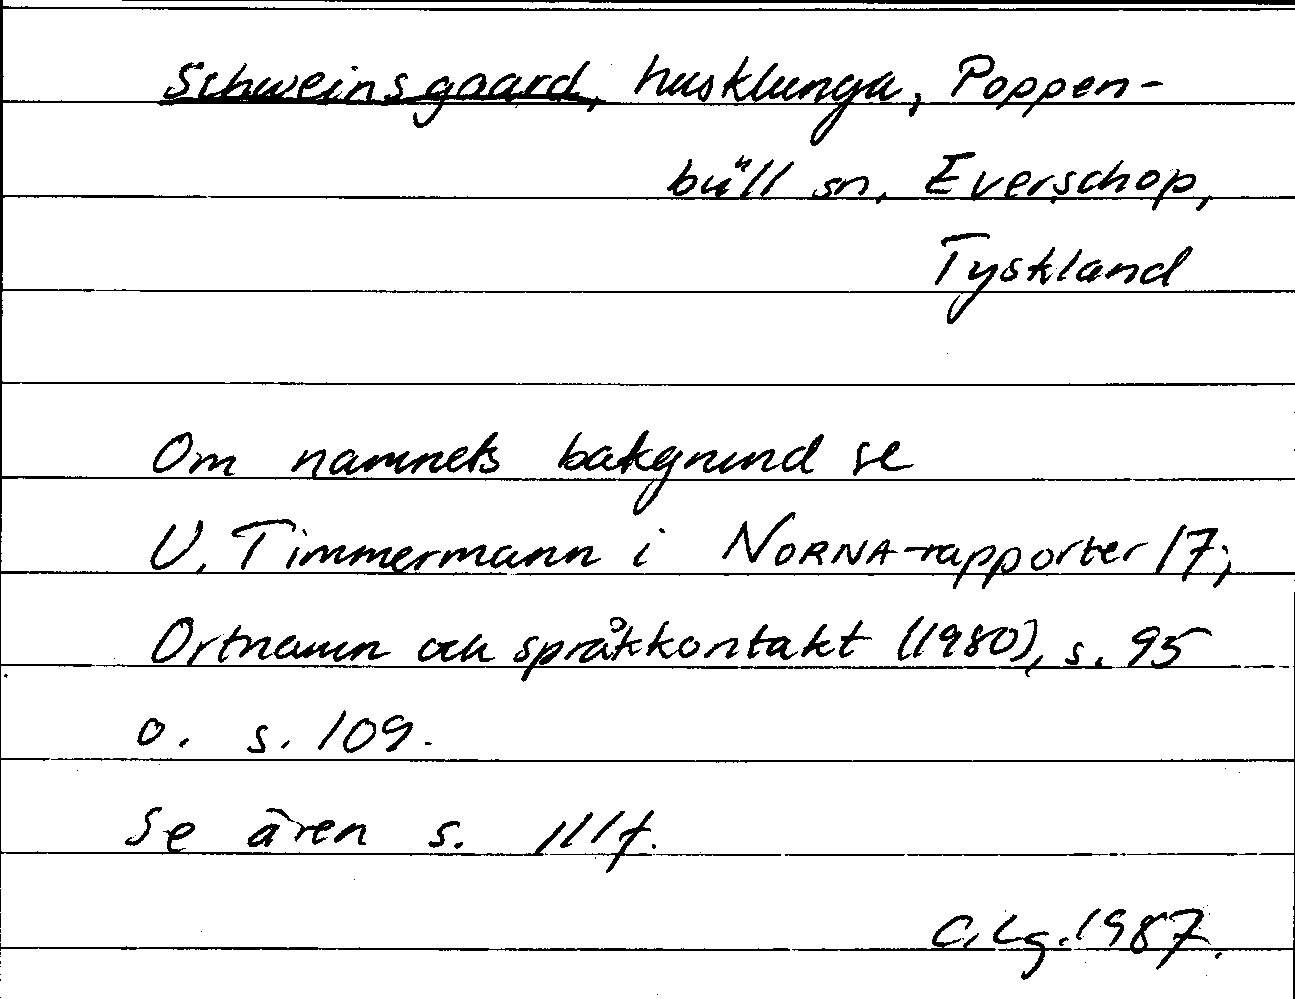 Schweinsgaard, husklunga, Poppen-
büll sn, Everschop,
Tyskland
Om namnets bakgrund se
U. Timmermann i NORNA-rapporter 17;
Ortnamn och språkkontakt (1980), s. 95
o. s. 109.
Se även s. 111f.
C.Lg. 1987.